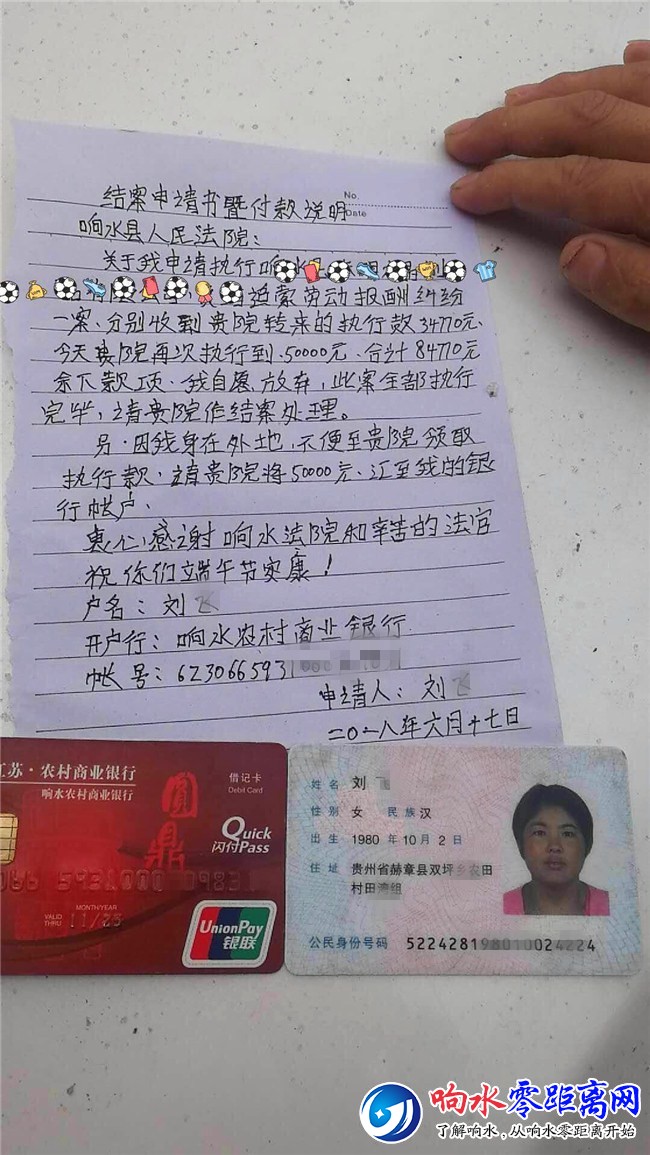 No.
结案申请书暨付款说明
Date
响水县人民法院：
关于我申请执行响水
追索劳动报酬纠纷
一案、分别收到贵院转来的执行款34770元、
今天贵院再次执行到50000元、合计84770元
余下款项、我自愿放弃，此案全部执行
完毕，请贵院作结案处理。
另、因我身在外地，不便至贵院领取
执行款、请贵院将50000元、汇至我的银
行帐户、
衷心感谢响水法院和辛苦的法官
祝你们端午节安康！
户名：刘
开户行：响水农村商业银行
帐号：6230665931
申请人：刘
二〇一八年六月十七日
江苏·农村商业银行
响水农村商业银行
借记卡
Debit Card
圆鼎
Quick
闪付Pass
MONTH/YEAR
VALID THRU 11/25
UnionPay
银联
姓名 刘
性别 女 民族 汉
出生 1980年10月2日
住址 贵州省赫章县双坪
村田
公民身份号码 522428
响水零距离网
了解响水，从响水零距离开始